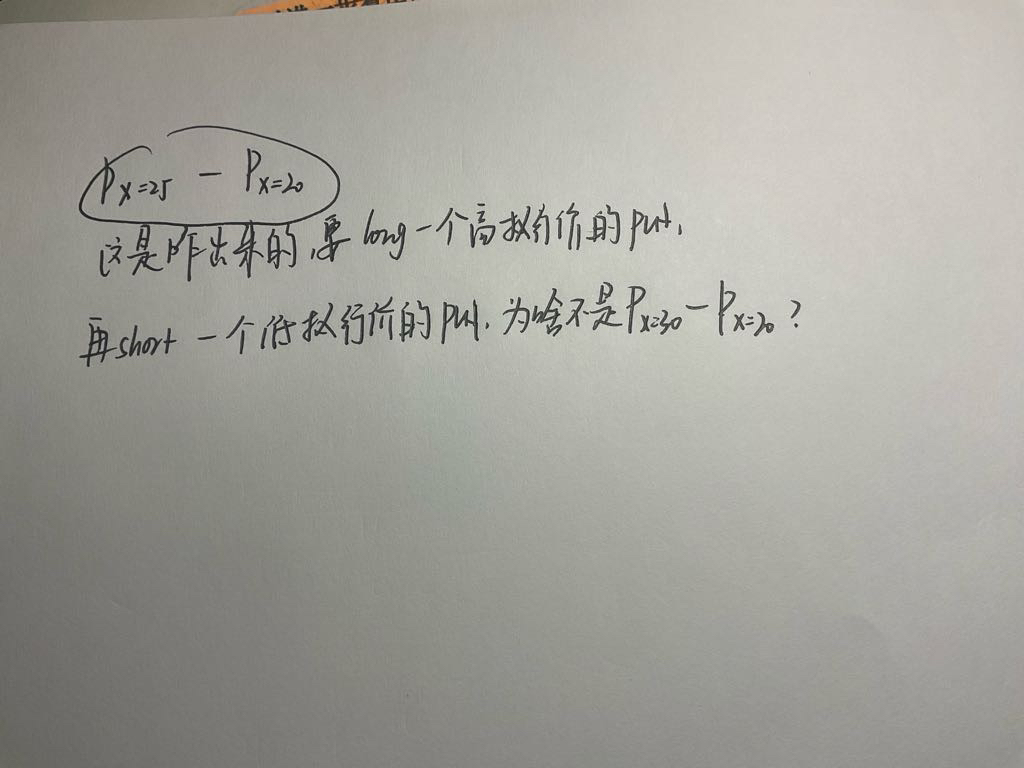 P x=25 - P x=20
这是咋出来的,要long一个高执行价的put,
再short一个低执行价的put,为啥不是P x=30 - P x=20?